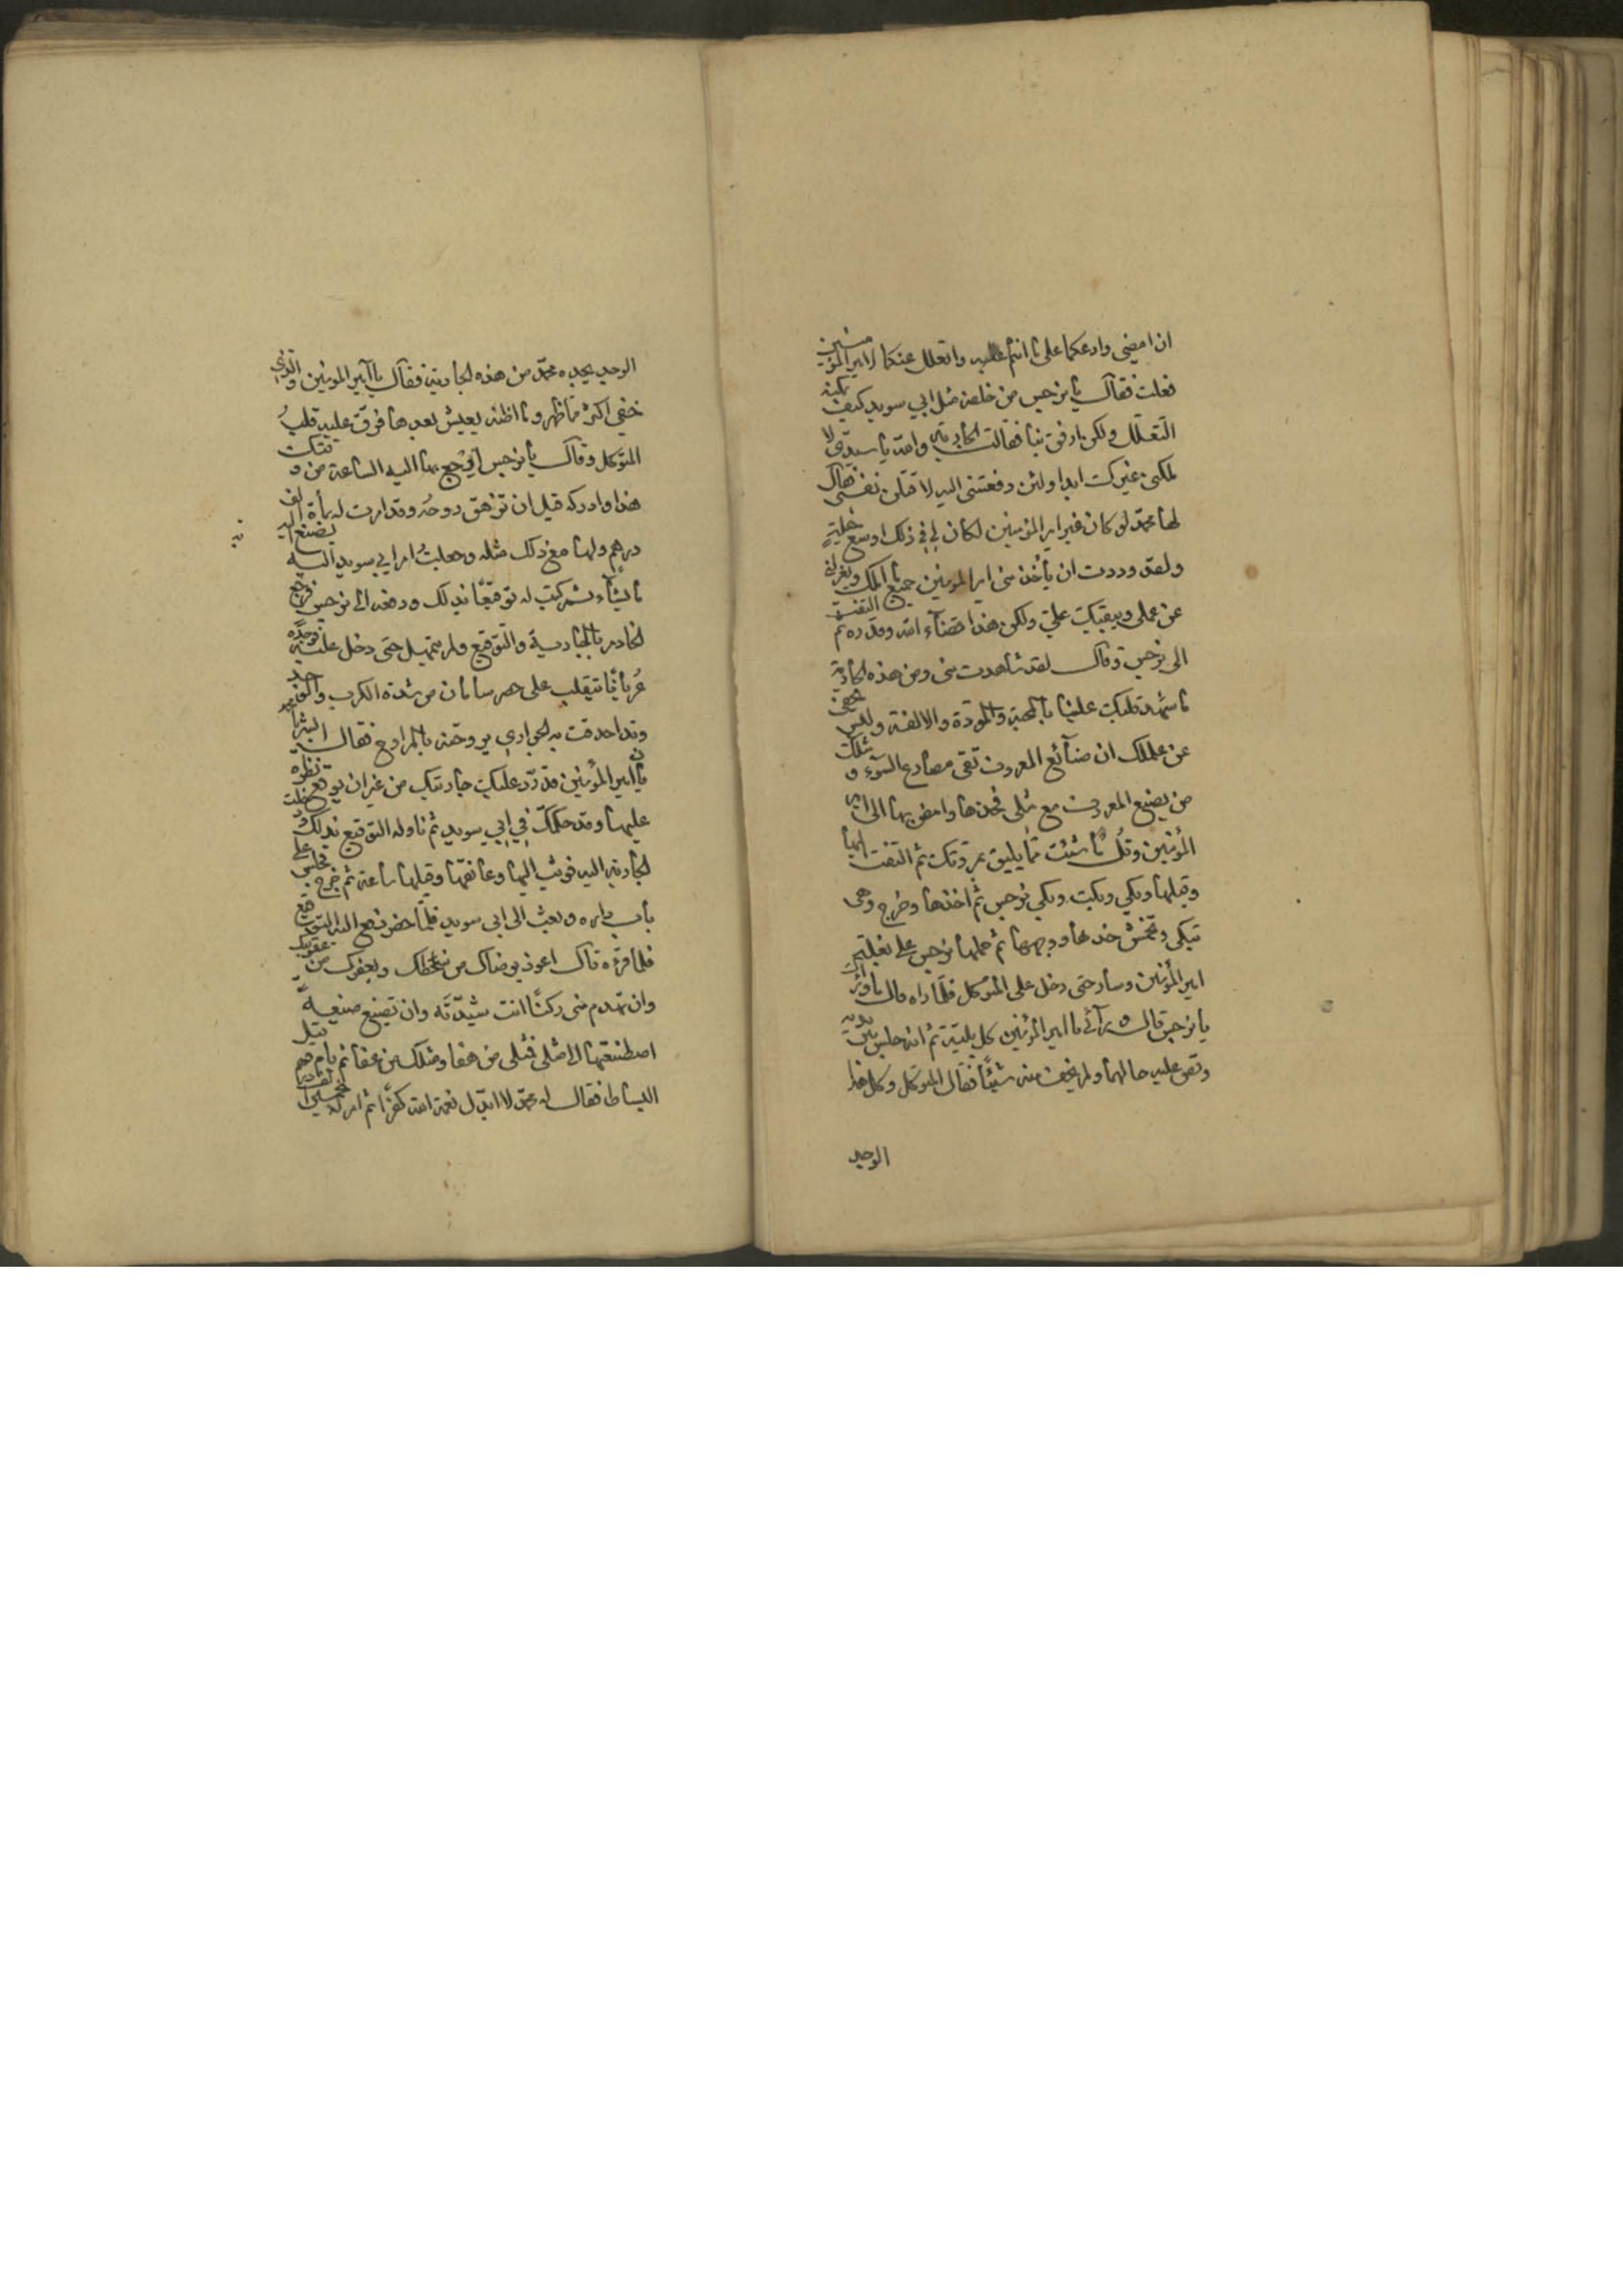 ان امضي وادعكما على ما انتم عليه واتعلل عنكما لامير المؤمنين
فعلت فقال يا نرجس من خلصه مثل ابي سويد كيف يمكنه
التعلل ولكن ارفق بنا فقالت الجارية والله يا سيدى لا
ملكنى غيرك ابدا ولئن دفعتنى اليه لاقتلن نفسى فقال
لها محمد لو كان غير امير المؤمنين لكان لي في ذلك اوسع حيلة
ولقد وددت ان يأخذ منى امير المومنين جميع ما املك ويعزلنى
عن عملى ويبقيك علي ولكن هذا قضاء الله وقدره ثم التفت
الى نرجس وقال لقد شاهدت منى ومن هذه الجارية
ما شهد قلبك علينا بالمحبة والمودة والالفة وليس يخفى
عن علمك ان صنائع المعروف تقى مصارع السوء ومثلك
من يصنع المعروف مع مثلى فخذها وامض بها الى امير
المؤمنين وقل ما شئت مما يليق بمروتك ثم التفت اليها
وقبلها وبكى وبكت وبكى نرجس ثم اخذها وخرج وهى
تبكى وتخمش خدها ووجهها ثم حملها نرجس على بغلته
امير المؤمنين وسار حتى دخل على المتوكل فلما راه قال ما وراك
يا نرجس قال ورآئى يا امير المؤمنين كل بلية ثم انه جلس بين يديه
وقص عليه حالهما ولم يخف منه شيئًا فقال المتوكل وكل هذا
الوجد
الوجد يجده محمد من هذه الجارية فقال يا امير المومنين والذى
خفى اكثر مما ظهر وما اظنه يعيش بعدها فرقّ عليه قلب
المتوكل وقال يا نرجس ارجع بها اليه الساعة من وقتك
هذا وادركه قبل ان تزهق روحه وقد امرت له بمأة الف
درهم ولها مع ذلك مثله وجعلت امر ابي سويد اليه يصنع به
ما يشاء ثم كتب له توقيعًا بذلك ودفعه الى نرجس فرجع
الخادم بالجارية والتوقيع ولم يتمهل حتى دخل عليه فوجده
عريانًا يتقلب على حصر سامان من شدة الكرب والوجد
وقد احدقت به الجوارى يروحنه بالمراوح فقال البشرى
يا امير المؤمنين قد رد عليك جاريتك من غير ان يوقع نظره
عليها وقد حكمك في ابي سويد ثم ناوله التوقيع بذلك ودخلت
الجارية اليه فوثب اليها وعانقها وقبلها ساعة ثم خرج فجلس على
باب داره وبعث الى ابي سويد فلما حضر دفع اليه التوقيع
فلما قرءه قال اعوذ برضاك من سخطك وبعفوك من عقوبتك
وان تهدم منى ركنًا انت شيّدته وان تضيع صنيعة
اصطنعتها الى مثلى فمثلى من هفا ومثلك من عفا ثم قام فقبل
البساط فقال له محمد لا ابدل نعمة الله كفرًا ثم امر له بخمسين الف درهم